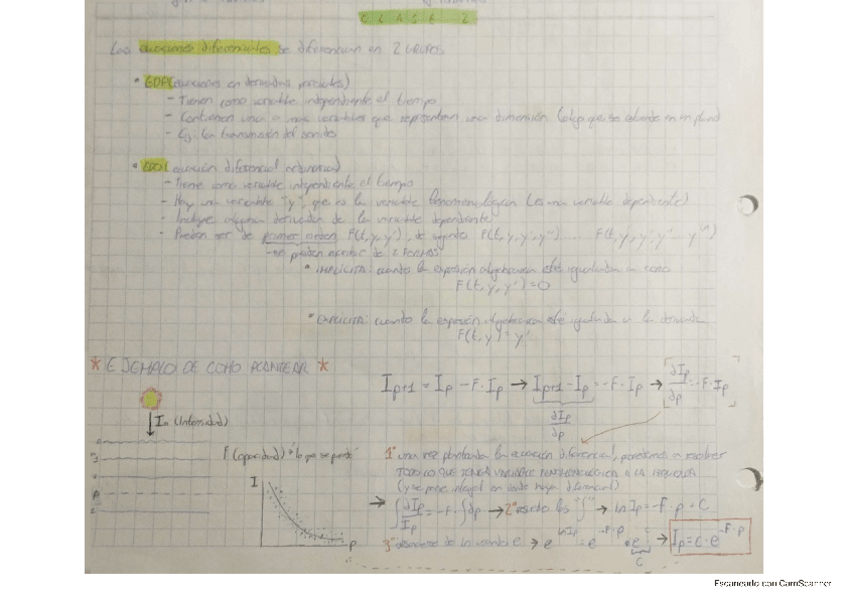 CLASE 2
Las ecuaciones diferenciales se diferencian en 2 GRUPOS
• EDP (ecuaciones en derivadas parciales)
- Tienen como variable independiente el tiempo
- Contienen una o más variables que representan una dimensión (algo que se extiende en un plano)
- Ej: la transmisión del sonido
• EDO (ecuación diferencial ordinaria)
- Tiene como variable independiente el tiempo
- Hay una variable "y", que es la variable fenomenológica (es una variable dependiente)
- Incluye alguna derivada de la variable dependiente
- Pueden ser de primer orden F(t, y, y'), de segundo F(t, y, y', y'') ..... F(t, y, y', y'' ... yⁿ)
- se pueden escribir de 2 FORMAS
• IMPLÍCITA: cuando la expresión algebraica esté igualada a cero
F(t, y, y') = 0
• EXPLÍCITA: cuando la expresión algebraica esté igualada a la derivada
F(t, y) = y'
* EJEMPLO DE COMO PLANTEAR *
Ip+1 = Ip - F · Ip → Ip+1 - Ip = -F · Ip → ∂Ip/∂p = -F · Ip
∂Ip/∂p
I₀ (Intensidad)
F (opacidad) = lo que se pierde
I
P
1º una vez planteada la ecuación diferencial, pasamos a resolver
TODO LO QUE TENGA VARIABLE FENOMENOLÓGICA A LA IZQUIERDA
(y se pone integral en donde haya diferencial)
→ ∫ ∂Ip/Ip = -F · ∫∂p → 2º resuelvo las "∫" → ln Ip = -F · p + C
3º deshacerse de ln usando e → e^ln Ip = e^-F·p · e^C → Ip = C · e^-F·p
C
Escaneado con CamScanner